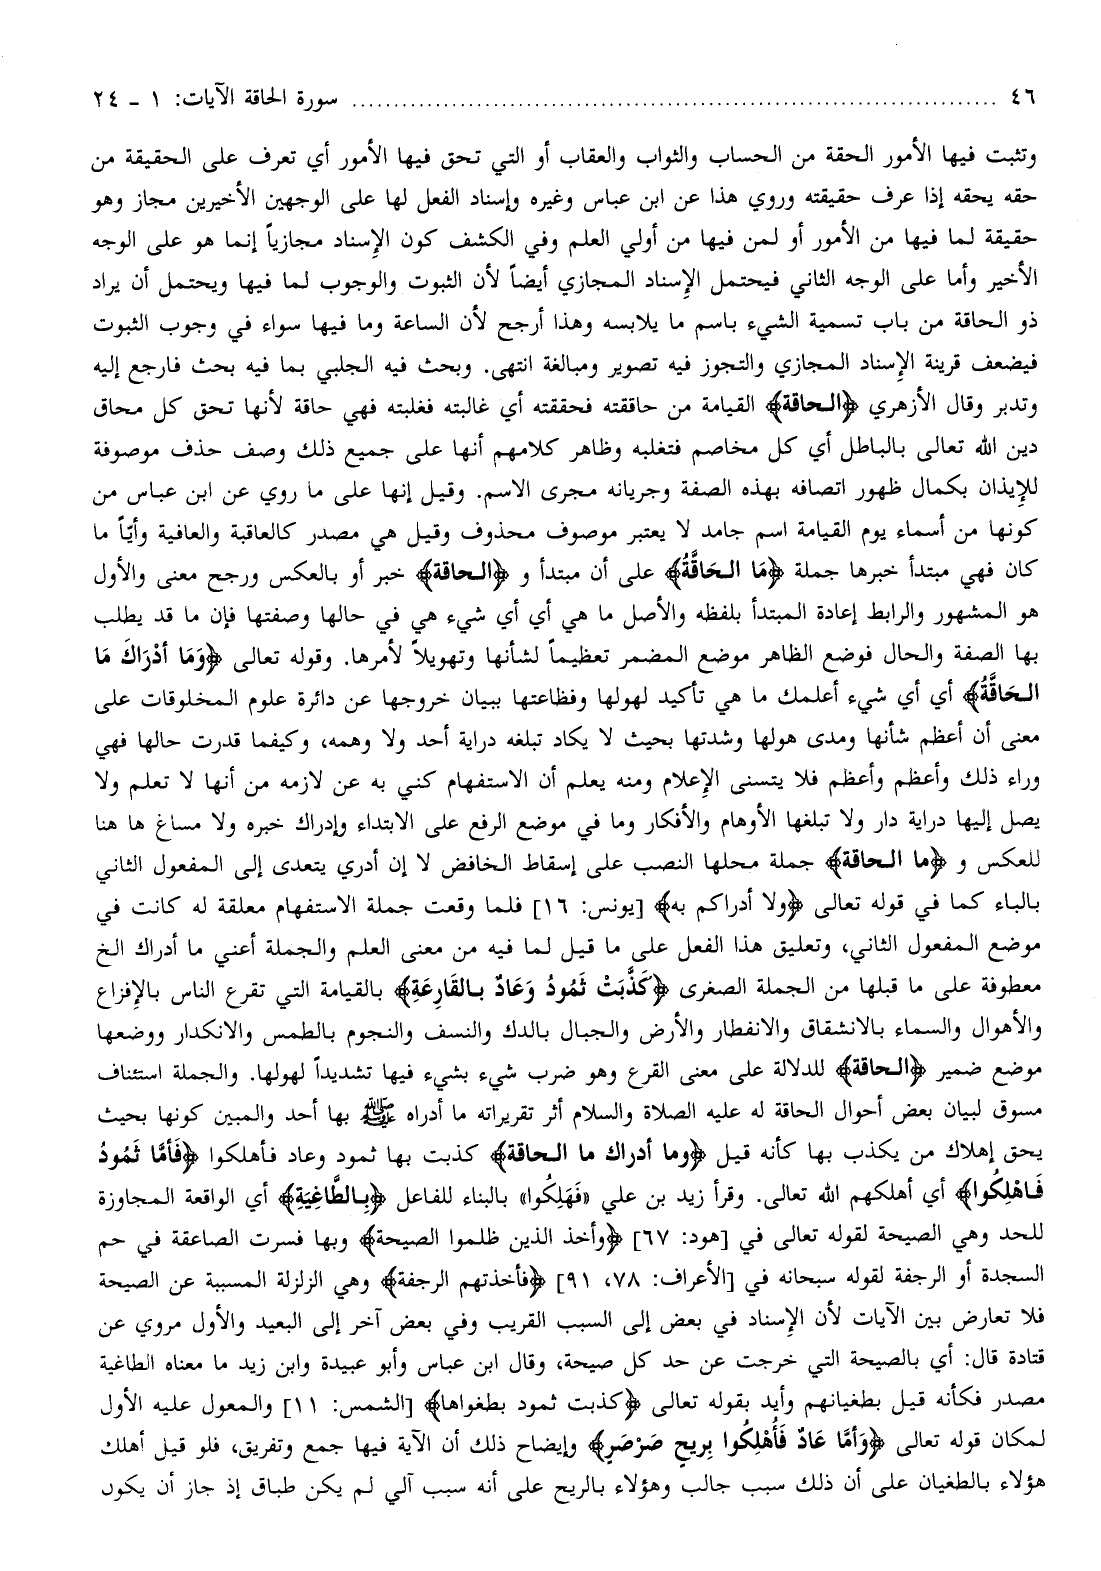 ٤٦ ........................................ سورة الحاقة الآيات: ١ - ٢٤
وتثبت فيها الأمور الحقة من الحساب والثواب والعقاب أو التي تحق فيها الأمور أي تعرف على الحقيقة من
حقه يحقه إذا عرف حقيقته وروي هذا عن ابن عباس وغيره وإسناد الفعل لها على الوجهين الأخيرين مجاز وهو
حقيقة لما فيها من الأمور أو لمن فيها من أولي العلم وفي الكشف كون الإسناد مجازياً إنما هو على الوجه
الأخير وأما على الوجه الثاني فيحتمل الإسناد المجازي أيضاً لأن الثبوت والوجوب لما فيها ويحتمل أن يراد
ذو الحاقة من باب تسمية الشيء باسم ما يلابسه وهذا أرجح لأن الساعة وما فيها سواء في وجوب الثبوت
فيضعف قرينة الإسناد المجازي والتجوز فيه تصوير ومبالغة انتهى. وبحث فيه الجلبي بما فيه بحث فارجع إليه
وتدبر وقال الأزهري ﴿الحاقة﴾ القيامة من حاققته فحققته أي غالبته فغلبته فهي حاقة لأنها تحق كل محاق
دين الله تعالى بالباطل أي كل مخاصم فتغلبه وظاهر كلامهم أنها على جميع ذلك وصف حذف موصوفة
للإيذان بكمال ظهور اتصافه بهذه الصفة وجريانه مجرى الاسم. وقيل إنها على ما روي عن ابن عباس من
كونها من أسماء يوم القيامة اسم جامد لا يعتبر موصوف محذوف وقيل هي مصدر كالعاقبة والعافية وأيّاً ما
كان فهي مبتدأ خبرها جملة ﴿مَا الحَاقَّةُ﴾ على أن مبتدأ و ﴿الحاقة﴾ خبر أو بالعكس ورجح معنى والأول
هو المشهور والرابط إعادة المبتدأ بلفظه والأصل ما هي أي أي شيء هي في حالها وصفتها فإن ما قد يطلب
بها الصفة والحال فوضع الظاهر موضع المضمر تعظيماً لشأنها وتهويلاً لأمرها. وقوله تعالى ﴿وَمَا أدْرَاكَ مَا
الحَاقَّةُ﴾ أي أي شيء أعلمك ما هي تأكيد لهولها وفظاعتها ببيان خروجها عن دائرة علوم المخلوقات على
معنى أن أعظم شأنها ومدى هولها وشدتها بحيث لا يكاد تبلغه دراية أحد ولا وهمه، وكيفما قدرت حالها فهي
وراء ذلك وأعظم وأعظم فلا يتسنى الإعلام ومنه يعلم أن الاستفهام كني به عن لازمه من أنها لا تعلم ولا
يصل إليها دراية دار ولا تبلغها الأوهام والأفكار وما في موضع الرفع على الابتداء وإدراك خبره ولا مساغ ها هنا
للعكس و ﴿ما الحاقة﴾ جملة محلها النصب على إسقاط الخافض لا إن أدري يتعدى إلى المفعول الثاني
بالباء كما في قوله تعالى ﴿ولا أدراكم به﴾ [يونس: ١٦] فلما وقعت جملة الاستفهام معلقة له كانت في
موضع المفعول الثاني، وتعليق هذا الفعل على ما قيل لما فيه من معنى العلم والجملة أعني ما أدراك الخ
معطوفة على ما قبلها من الجملة الصغرى ﴿كَذَّبَتْ ثَمُودُ وَعَادٌ بالقَارِعَةِ﴾ بالقيامة التي تقرع الناس بالإفزاع
والأهوال والسماء بالانشقاق والانفطار والأرض والجبال بالدك والنسف والنجوم بالطمس والانكدار ووضعها
موضع ضمير ﴿الحاقة﴾ للدلالة على معنى القرع وهو ضرب شيء بشيء فيها تشديداً لهولها. والجملة استئناف
مسوق لبيان بعض أحوال الحاقة له عليه الصلاة والسلام أثر تقريراته ما أدراه ﷺ بها أحد والمبين كونها بحيث
يحق إهلاك من يكذب بها كأنه قيل ﴿وما أدراك ما الحاقة﴾ كذبت بها ثمود وعاد فأهلكوا ﴿فَأمَّا ثَمُودُ
فَاهْلِكُوا﴾ أي أهلكهم الله تعالى. وقرأ زيد بن علي «فَهَلِكُوا» بالبناء للفاعل ﴿بِالطَّاغِيَةِ﴾ أي الواقعة المجاوزة
للحد وهي الصيحة لقوله تعالى في [هود: ٦٧] ﴿وأخذ الذين ظلموا الصيحة﴾ وبها فسرت الصاعقة في حم
السجدة أو الرجفة لقوله سبحانه في [الأعراف: ٧٨، ٩١] ﴿فأخذتهم الرجفة﴾ وهي الزلزلة المسببة عن الصيحة
فلا تعارض بين الآيات لأن الإسناد في بعض إلى السبب القريب وفي بعض آخر إلى البعيد والأول مروي عن
قتادة قال: أي بالصيحة التي خرجت عن حد كل صيحة، وقال ابن عباس وأبو عبيدة وابن زيد ما معناه الطاغية
مصدر فكأنه قيل بطغيانهم وأيد بقوله تعالى ﴿كذبت ثمود بطغواها﴾ [الشمس: ١١] والمعول عليه الأول
لمكان قوله تعالى ﴿وَأمَّا عَادٌ فَأُهْلِكُوا بِرِيحٍ صَرْصَرٍ﴾ وإيضاح ذلك أن الآية فيها جمع وتفريق، فلو قيل أهلك
هؤلاء بالطغيان على أن ذلك سبب جالب وهؤلاء بالريح على أنه سبب آلي لم يكن طباق إذ جاز أن يكون